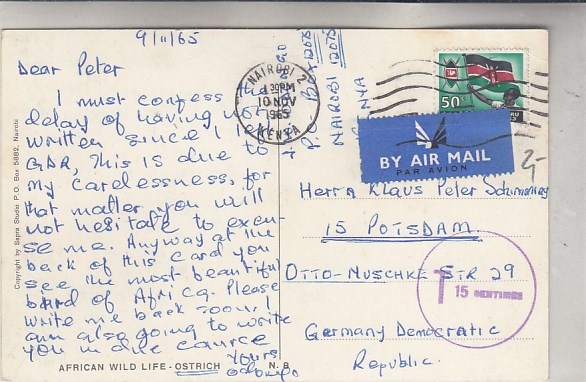 9/11/65
Dear Peter
I must confess the
delay of having not
written since I left
GDR, This is due to
my carelessness, for
that matter you will
not hesitate to excu-
se me. Anyway at the
back of this card you
see the most beautiful
bird of Africa. Please
write me back soon, I
am also going to write
you in due cource
Yours
AFRICAN WILD LIFE - OSTRICH N. 8
Copyright by Sapra Studio P.O. Box 5882, Nairobi
P.O. BOX 12075
NAIROBI
KENYA
NAIROBI 2
30PM
10 NOV
1965
KENYA
50
BY AIR MAIL
PAR AVION
2/-
Herrn Klaus Peter
15 POTSDAM
OTTO-NUSCHKE STR 29
T 15 CENTIMES
Germany Democratic
Republic.